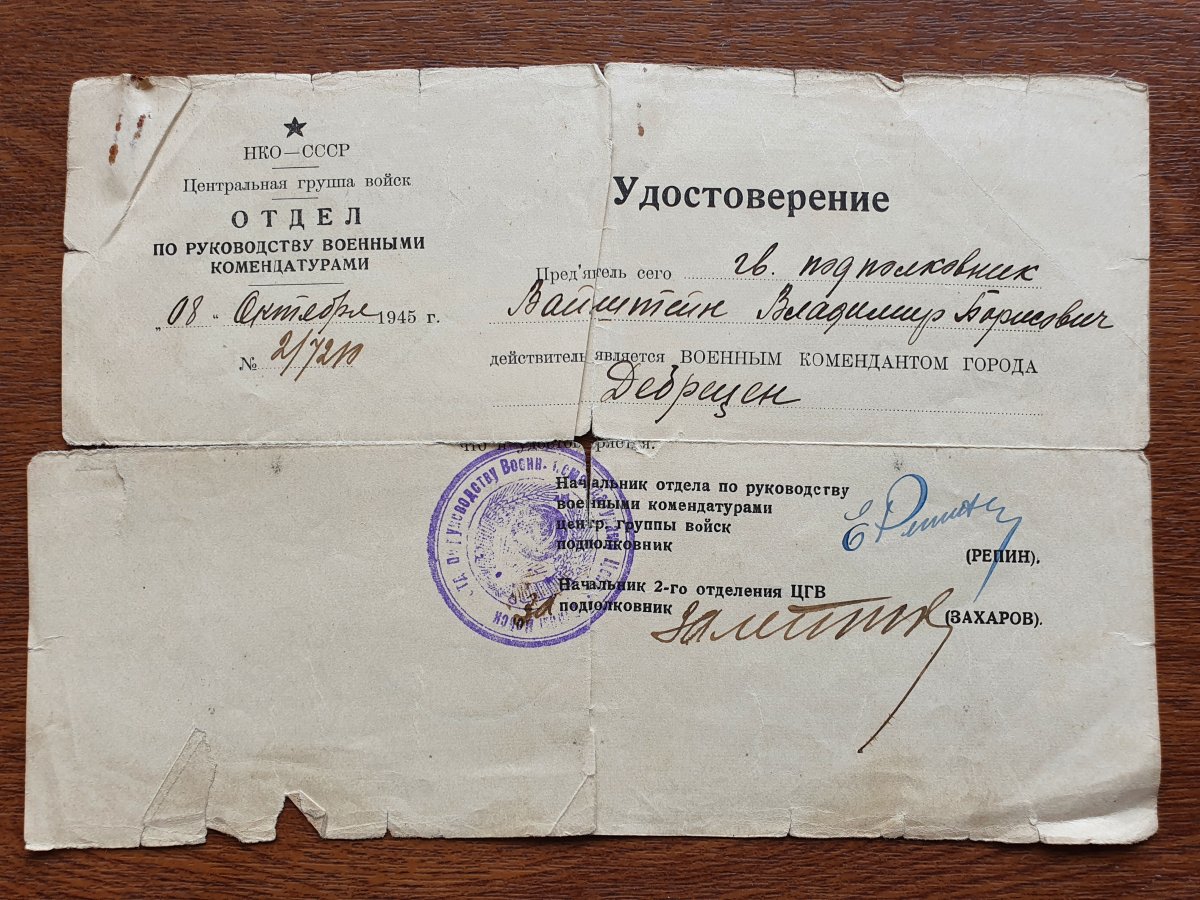 НКО—СССР
Центральная группа войск
ОТДЕЛ
ПО РУКОВОДСТВУ ВОЕННЫМИ
КОМЕНДАТУРАМИ
„08“ Октября 1945 г.
№ 2/7210
Удостоверение
Пред'ятель сего гв. подполковник
Вайнштейн Владимир Борисович
действитель является ВОЕННЫМ КОМЕНДАНТОМ ГОРОДА
Дебрецен
что и удостоверяется.
Начальник отдела по руководству
военными комендатурами
центр. группы войск
подполковник
(РЕПИН).
Начальник 2-го отделения ЦГВ
За подполковник
(ЗАХАРОВ).